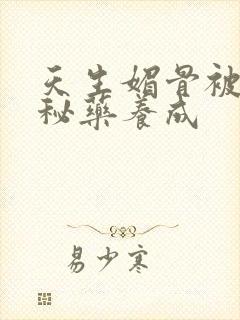 天生媚骨被
秘药养成
易少寒